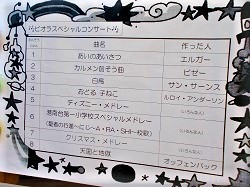 ビオラスペシャルコンサート
曲名 作った人
1 あいのあいさつ エルガー
2 カルメン前そう曲 ビゼー
3 白鳥 サン・サーンス
4 おどる 子ねこ ルロイ・アンダーソン
5 ディズニー・メドレー (いろんな人)
6 港南台第一小学校スペシャルメドレー (いろんな人)
7 クリスマス・メドレー (いろんな人)
8 天国と地獄 オッフェンバック